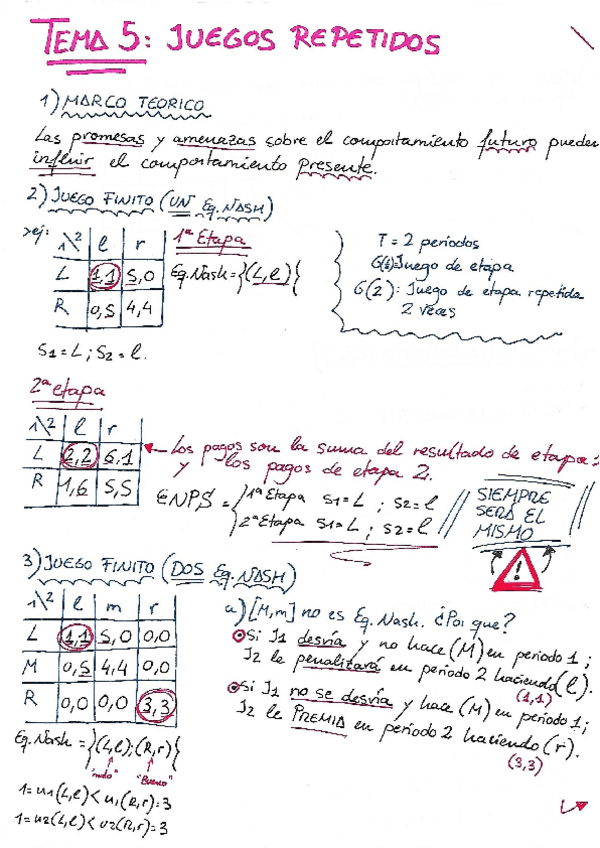 TEMA 5: JUEGOS REPETIDOS
1) MARCO TEORICO
Las promesas y amenazas sobre el comportamiento futuro pueden
influir el comportamiento presente.
2) JUEGO FINITO (UN Eq. NASH)
ej:
1\2 l r
L 1,1 5,0
R 0,5 4,4
1ª Etapa
Eq. Nash = {(L,l)}
T = 2 periodos
Juego de etapa
G(2): Juego de etapa repetida
2 veces
S1 = L ; S2 = l.
2ª etapa
1\2 l r
L 2,2 6,1
R 1,6 5,5
Los pagos son la suma del resultado de etapa 1
y los pagos de etapa 2.
ENPS = { 1ª Etapa S1 = L ; S2 = l
2ª Etapa S1 = L ; S2 = l
SIEMPRE
SERÁ EL
MISMO
!
3) JUEGO FINITO (DOS Eq. NASH)
1\2 l m r
L 1,1 5,0 0,0
M 0,5 4,4 0,0
R 0,0 0,0 3,3
Eq. Nash = {(L,l);(R,r)}
"malo" "Bueno"
1 = u1(L,l) < u1(R,r) = 3
1 = u2(L,l) < u2(R,r) = 3
a) [M,m] no es Eq. Nash. ¿Por que?
Si J1 desvía y no hace (M) en periodo 1;
J2 le penalizará en periodo 2 haciendo (l).
(1,1)
Si J1 no se desvía y hace (M) en periodo 1;
J2 le PREMIA en periodo 2 haciendo (r).
(3,3)